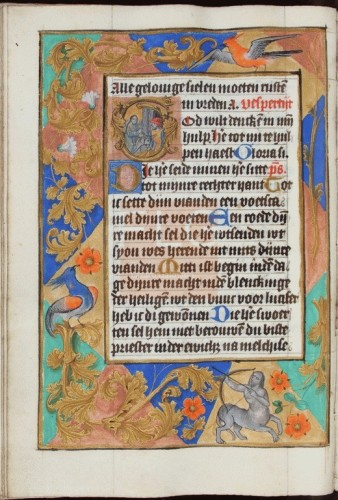 Alle gelouige sielen moeten rusten
in vreden A. Vespertijt
God wilt dencken in mijn
hulp hẽ tot mi te hul
pen haest Gloria si.
Die hẽ seide minen hẽ sitte ps
tot mijnre rechter hant Tot
ic sette dijn vianden een voetscã
mel dijnre voeten Een roede dij
re macht sel die hẽ wtsenden wt
syon wes herende int mids dijnre
vianden Mitti ist begin inden da
ge dijnre macht inde blenckinge
der heiligen wt den buuc voor lucifer
heb ic di gewonnen Die hẽ swoer
ten sel hem niet berouwen du biste
priester inder ewichz na melchise.